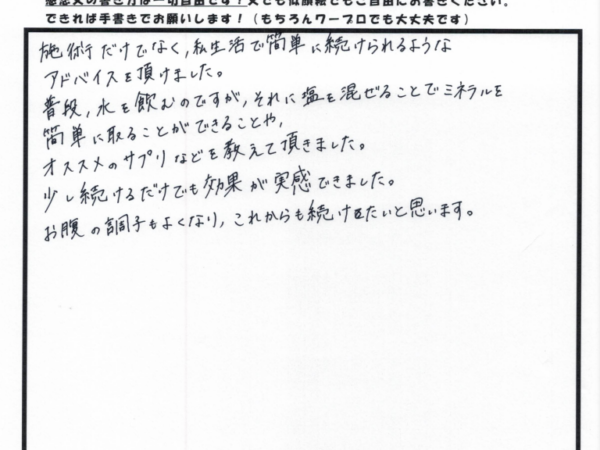 感想文の書き方は一切自由です！文でも似顔絵でもご自由にお書きください。
できれば手書きでお願いします！（もちろんワープロでも大丈夫です）
施術だけでなく，私生活で簡単に続けられるような
アドバイスを頂けました。
普段，水を飲むのですが，それに塩を混ぜることでミネラルを
簡単に取ることができることや，
オススメのサプリなどを教えて頂きました。
少し続けるだけでも効果が実感できました。
お腹の調子もよくなり，これからも続けたいと思います。